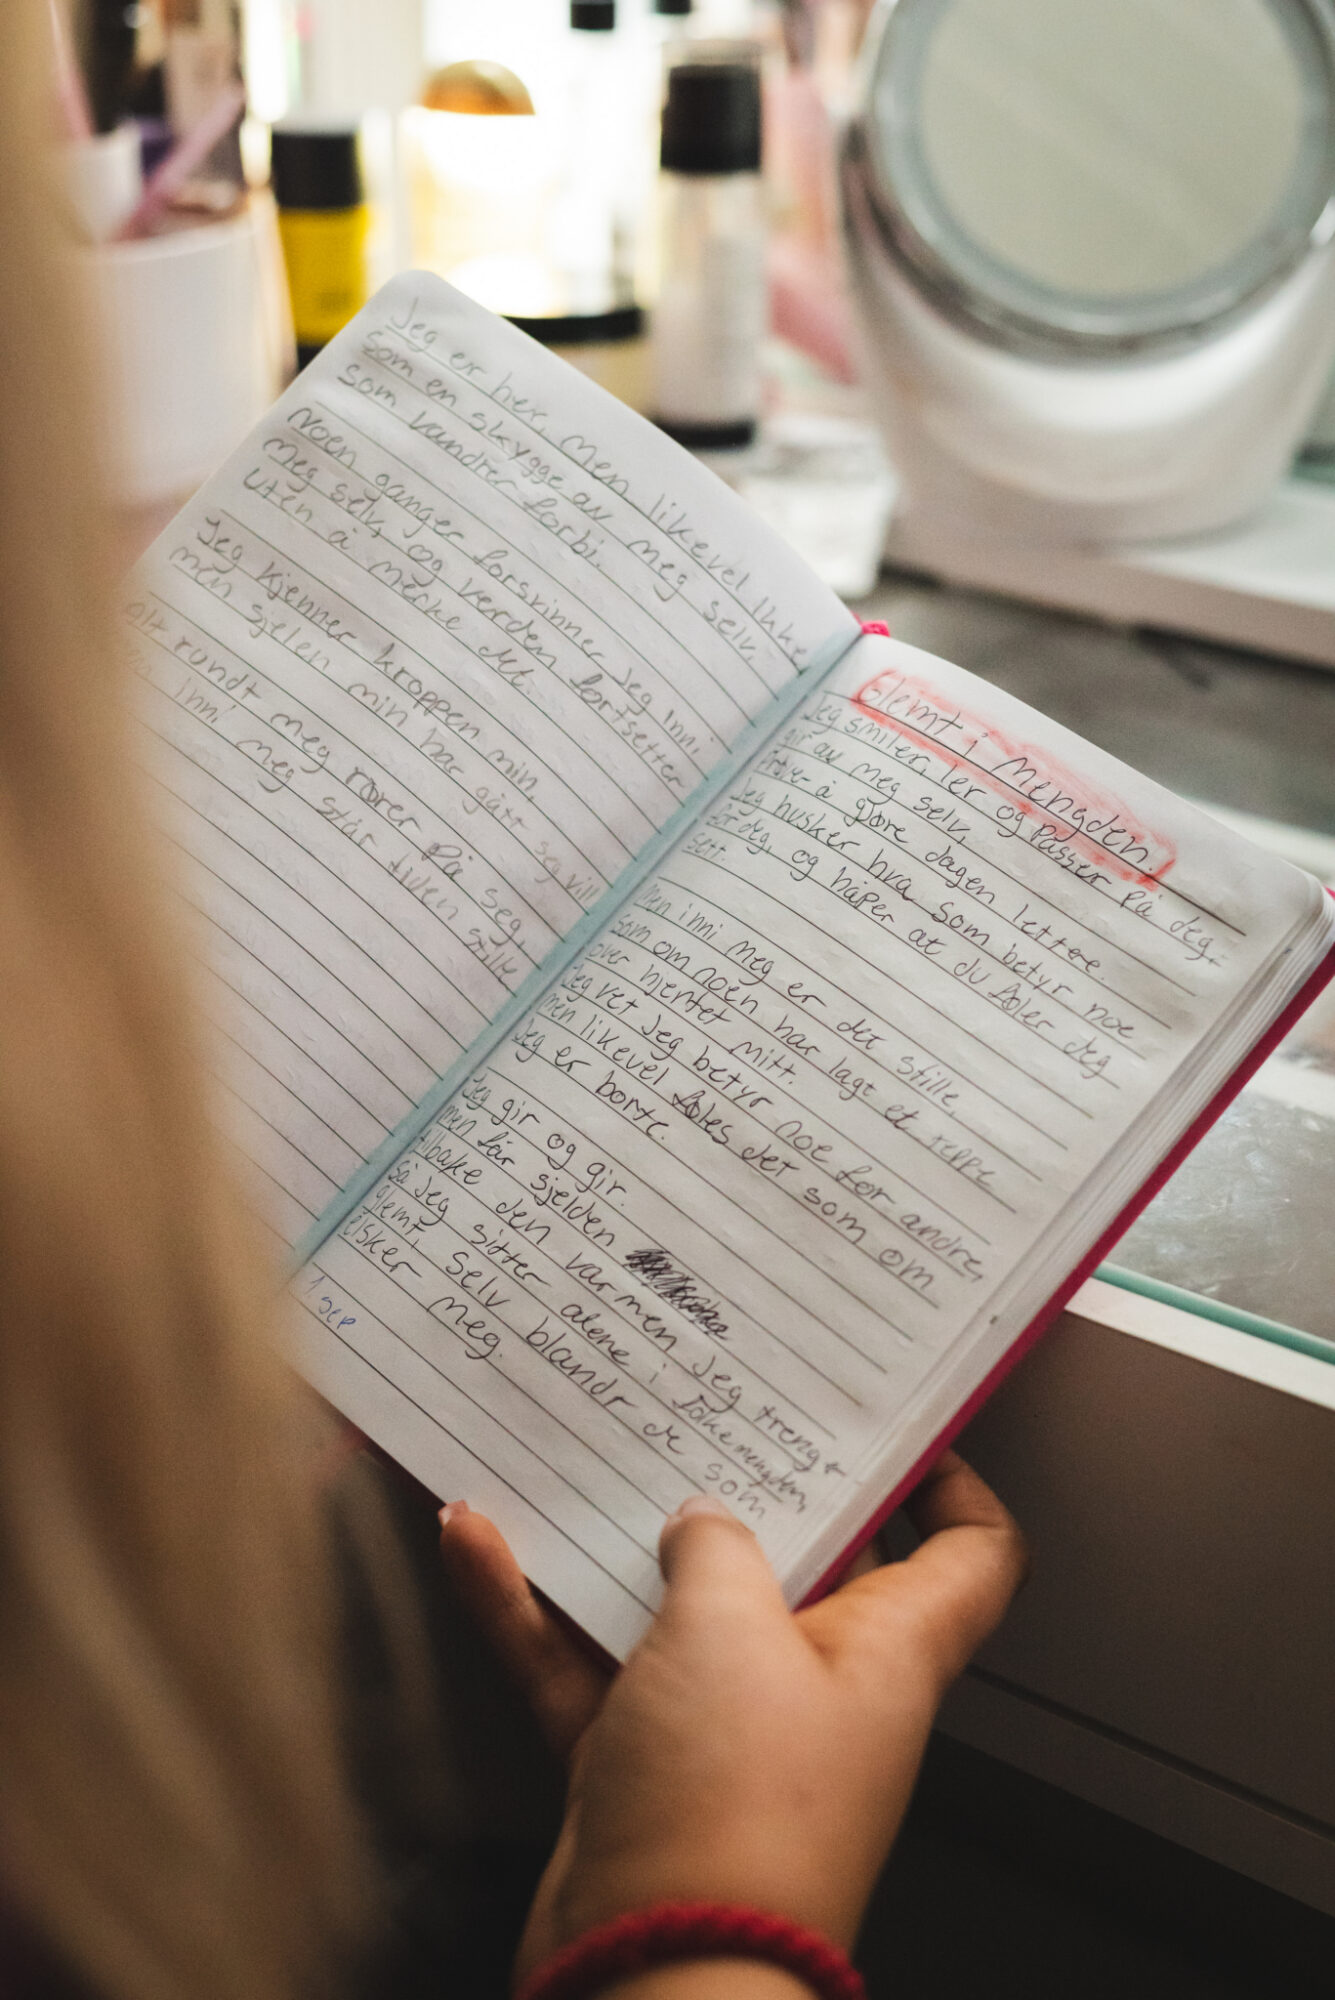 Jeg er her, men likevel ikke
som en skygge av meg selv,
som vandrer forbi.
Noen ganger forsvinner jeg inni
meg selv, og verden fortsetter
uten å merke det.
Jeg kjenner kroppen min,
men sjelen min har gått seg vill
alt rundt meg rører på seg,
inni meg står tiden stille
Glemt i Mengden.
Jeg smiler, ler og passer på deg,
gir av meg selv,
Prøver å gjøre dagen lettere.
Jeg husker hva som betyr noe
for deg, og håper at du føler deg
sett.
Men inni meg er det stille,
som om noen har lagt et teppe
over hjertet mitt.
Jeg vet jeg betyr noe for andre,
men likevel føles det som om
Jeg er borte.
Jeg gir og gir.
men får sjelden
tilbake den varmen jeg trenger
så jeg sitter alene i folkemengden,
glemt, selv blandt de som
elsker meg.
1 sep